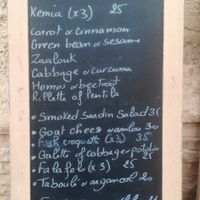 Kemia (x3) 25
Carrot & cinnamon
Green bean & sesame
Zaalouk
Cabbage & curcuma
Homos & beetroot
Rillette of lentils
• Smoked Sardin Salad 3
• Goat cheese & amlou 30
• Fish croquette (x3) 35
• Galette of cabbage-potatoe
• Falafels (x3) 25
• Taboulé & argan oil 20